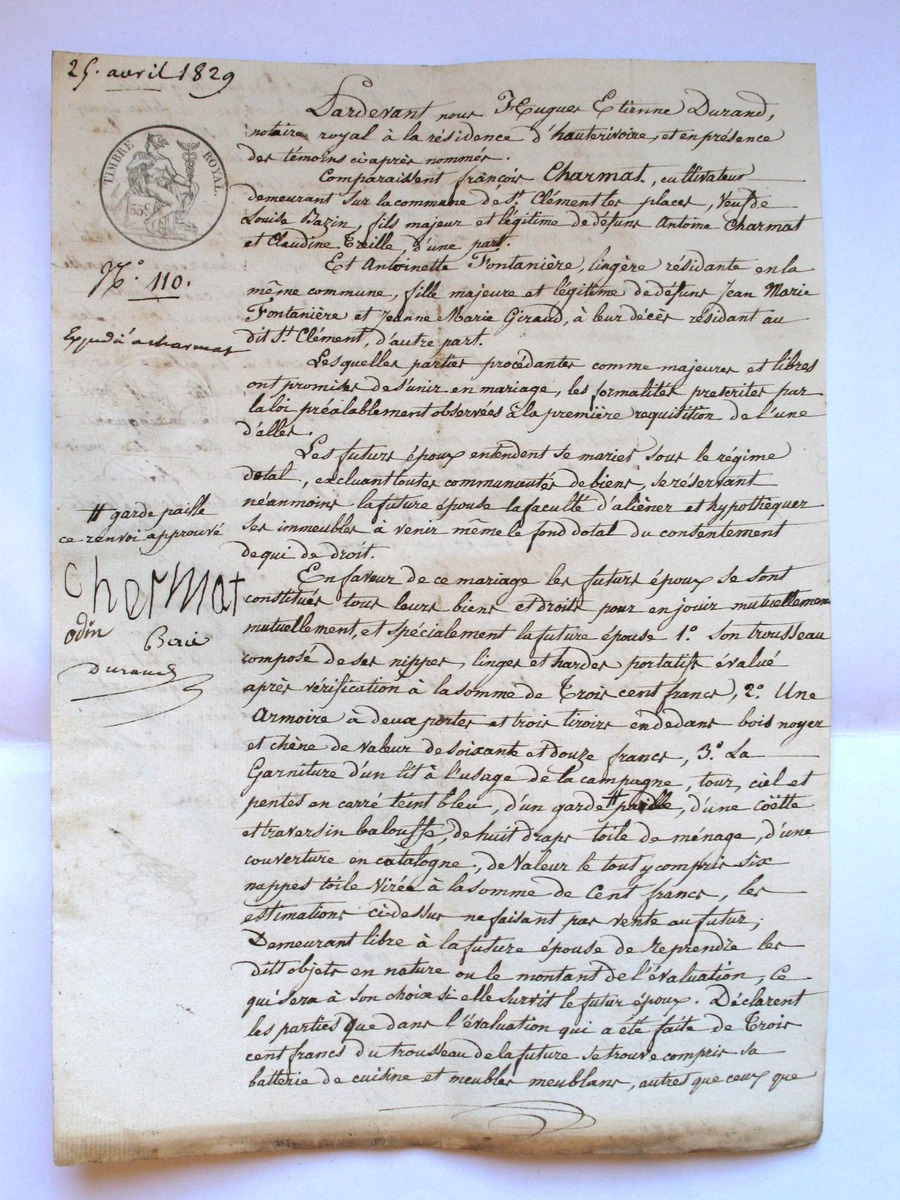 25. avril 1829
TIMBRE ROYAL.
35c
N.° 110.
Expédié à charmat
Pardevant nous Hugues Etienne Durand,
notaire royal à la résidence d'hauterivoire, et en présence
des témoins ci après nommés.
Comparaissent françois Charmat, cultivateur
demeurant sur la commune de St. Clément les places, Veuf de
Louise Bazin, fils majeur et légitime de défunts Antoine Charmat
et Claudine Treille, d'une part.
Et Antoinette Fontanière, lingère résidante en la
même commune, fille majeure et légitime de défuns Jean Marie
Fontanière et Jeanne Marie Giraud, à leur décès résidant au
dit St. Clément, d'autre part.
Lesquelles parties procédantes comme majeures et libres
ont promises de s'unir en mariage, les formalités prescrites par
la loi préalablement observées à la première requitition de l'une
d'elles.
Les futurs époux entendent se marier sous le régime
dotal, excluant toutes communautés de biens, se réservant
néanmoins la future épouse la faculté d'aliéner et hypothéquer
ses immeubles à venir même le fond dotal du consentement
de qui de droit.
# garde paille
ce renvoi approuvé
Chermat
odin
Durand
En faveur de ce mariage les futurs époux se sont
constitués tous leurs biens et droits pour en jouir mutuellemen
mutuellement, et spécialement la future épouse 1.° son trousseau
composé de ses nippes, linges et hardes portatifs évalué
après vérification à la somme de Trois cent francs, 2.° Une
Armoire à deux portes et trois tiroirs en dedans bois noyer
et chêne de valeur de soixante et douze francs, 3.° La
Garniture d'un lit à l'usage de la campagne, tour, ciel et
pentes en carré teint bleu, d'un garde # paille, d'une coëtte
et traversin balouffe, de huit draps toile de ménage, d'une
couverture en catalogne, de Valeur le tout y compris six
nappes toile Virée à la somme de Cent francs, les
estimations ci-dessus ne faisant pas vente au futur;
Demeurant libre à la future épouse de reprendre les
dits objets en nature ou le montant de l'évaluation, Ce
qui sera à son choix si elle survit le futur époux. Déclarent
les parties que dans l'évaluation qui a été faite de Trois
cent francs du trousseau de la future se trouve compris sa
batterie de cuisine et meubles meublans, autres que ceux que